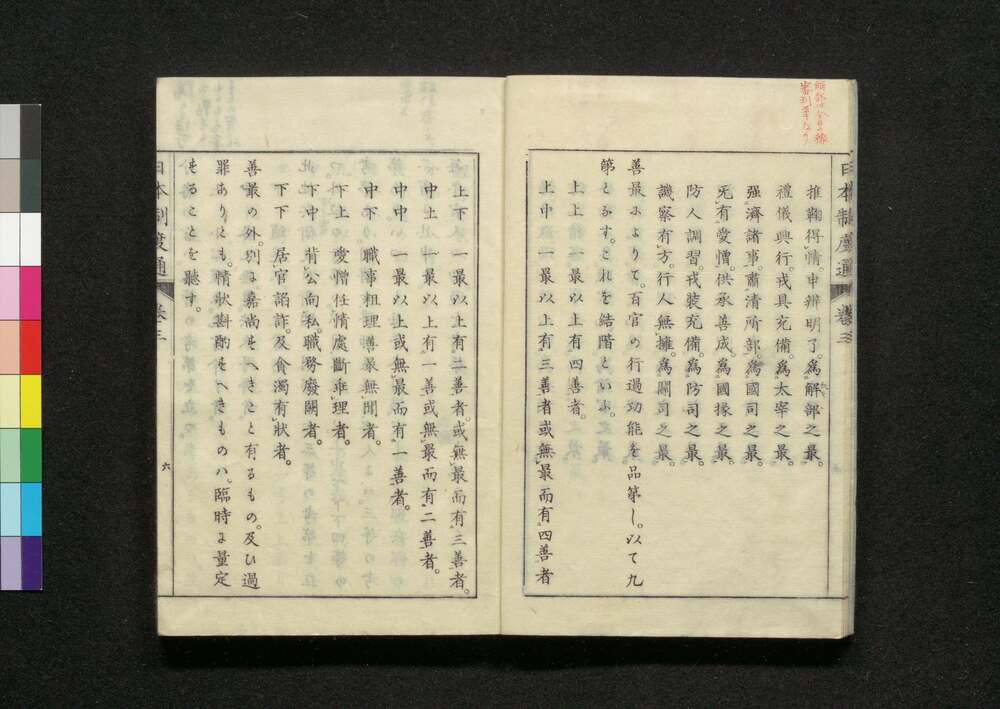 日本制度通 卷三
推鞠得情。申辨明了。爲解部之最。
禮儀興行。戎具充備。爲太宰之最。
强濟諸事。肅清所部。爲國司之最。
无有愛憎。供承善成。爲國掾之最。
防人調習。戎裝充備。爲防司之最。
譏察有方。行人無擁。爲關司之最。
善最によりて。百官の行過功能を品第し。以て九
第となす。これを結階といふ。
上上 一最以上有四善者。
上中 一最以上有三善者或無最而有四善者
上下 一最以上有二善者。或無最而有三善者。
中上 一最以上有一善或無最而有二善者。
中中 一最以上或無最而有一善者。
中下 職事粗理善最無聞者。
下上 愛憎任情處斷乖理者。
下中 背公向私。職務廢闕者。
下下 居官諂詐。及貪濁有狀者。
善最の外。別に嘉尚すへきこと有るもの。及ひ過
罪ありとも。情狀斟酌すへきものハ。臨時に量定
することを聽す。
日本制度通 卷三
六